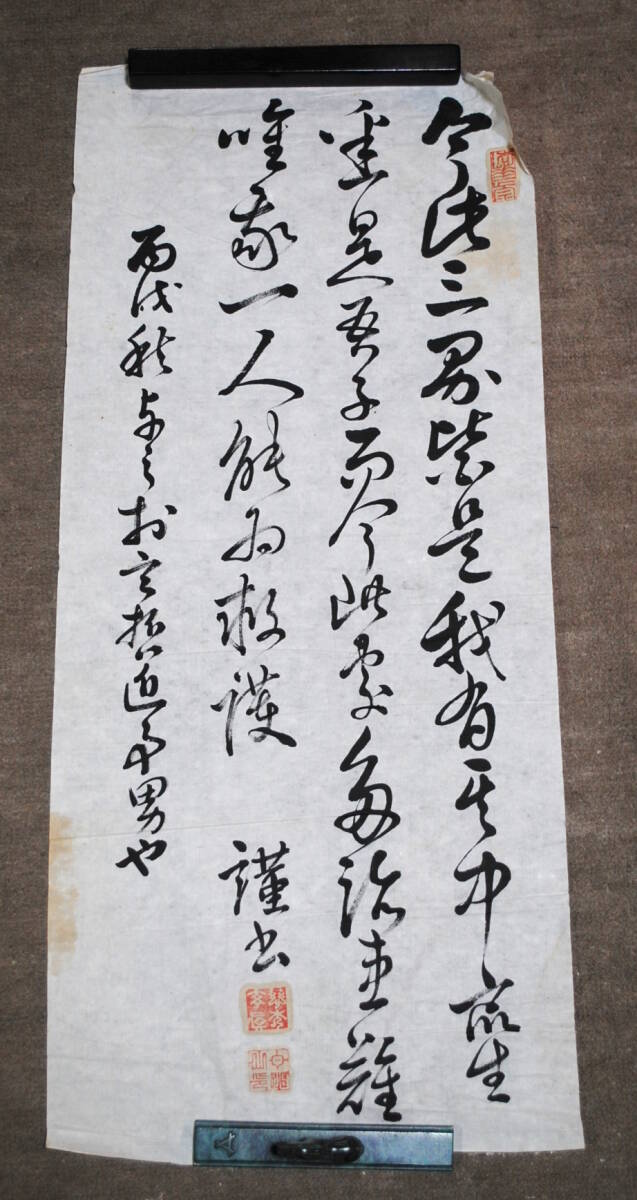 今此三界皆是我有其中衆生
悉是吾子而今此處多諸患難
唯我一人能為救護
謹書
丙戌秋与之於
男也